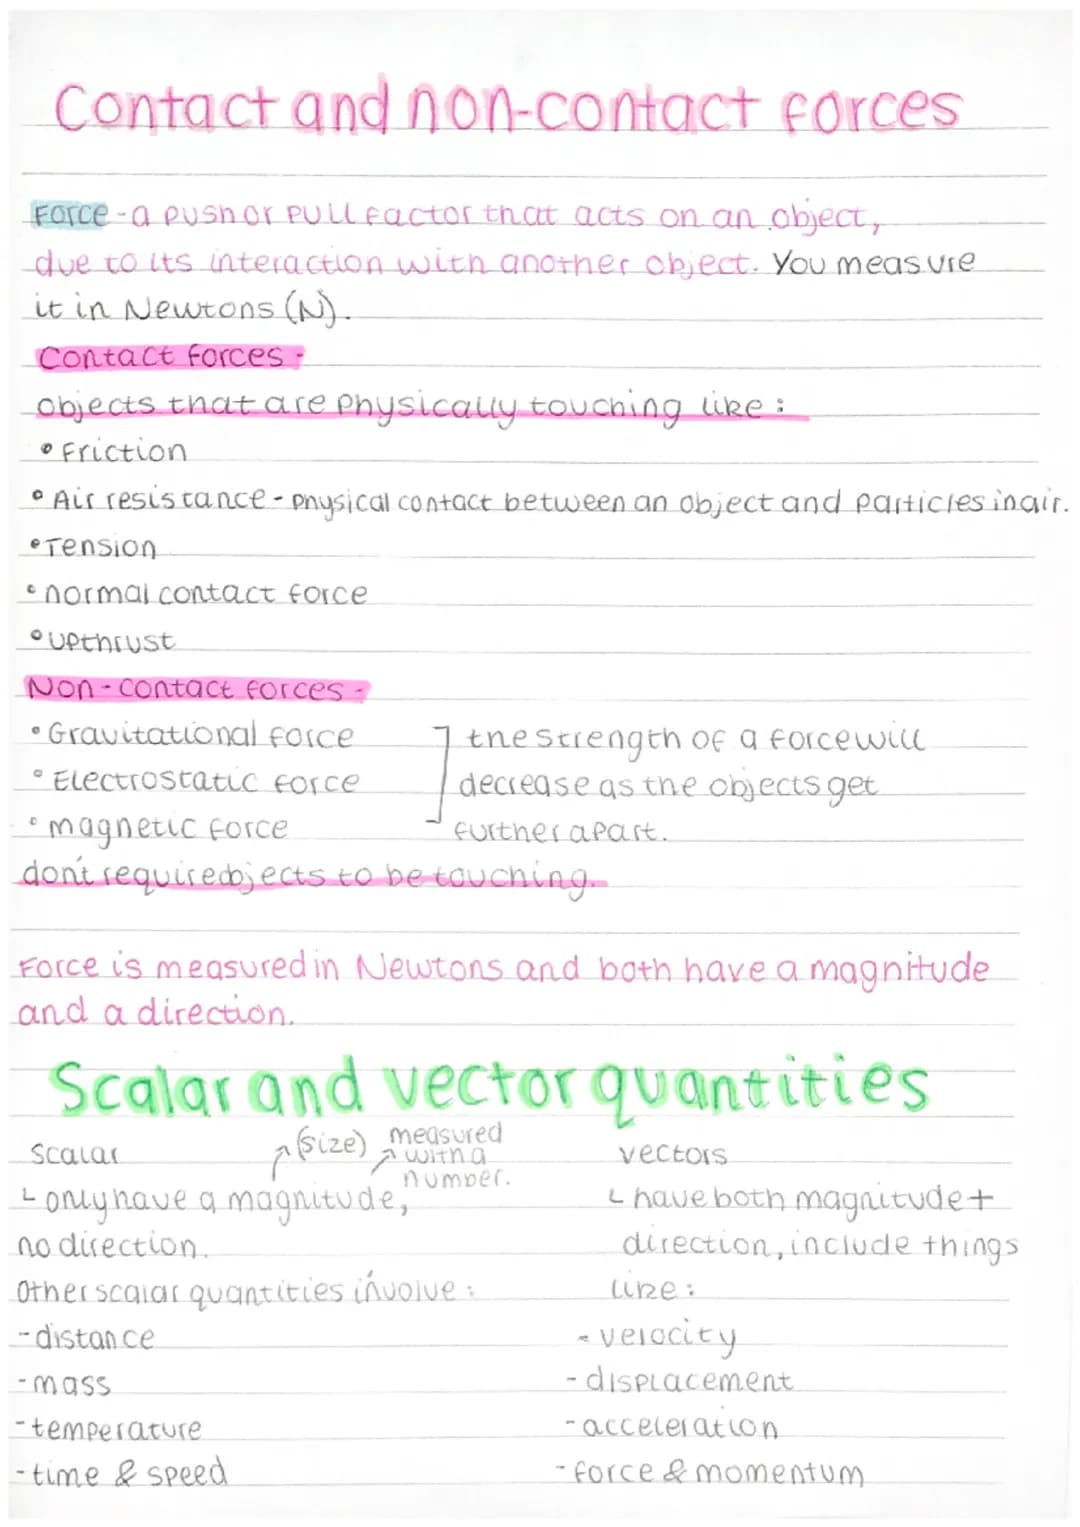 Contact and non-contact forces
Force - a push or pull factor that acts on an object,
due to its interaction with another object. You measure
it in Newtons (N).
Contact forces -
objects that are physically touching like :
• Friction
• Air resistance - physical contact between an object and particles in air.
• Tension
• normal contact force
• upthrust
Non - contact forces -
• Gravitational force
• Electrostatic force
• magnetic force
the strength of a force will
decrease as the objects get
further apart.
don't require objects to be touching.
Force is measured in Newtons and both have a magnitude
and a direction.
Scalar and vector quantities
Scalar
(size)
measured
with a
number.
only have a magnitude,
no direction.
Other scalar quantities involve :
- distance
- mass
- temperature
- time & speed
vectors
have both magnitude +
direction, include things
like :
- velocity
- displacement
- acceleration
- force & momentum